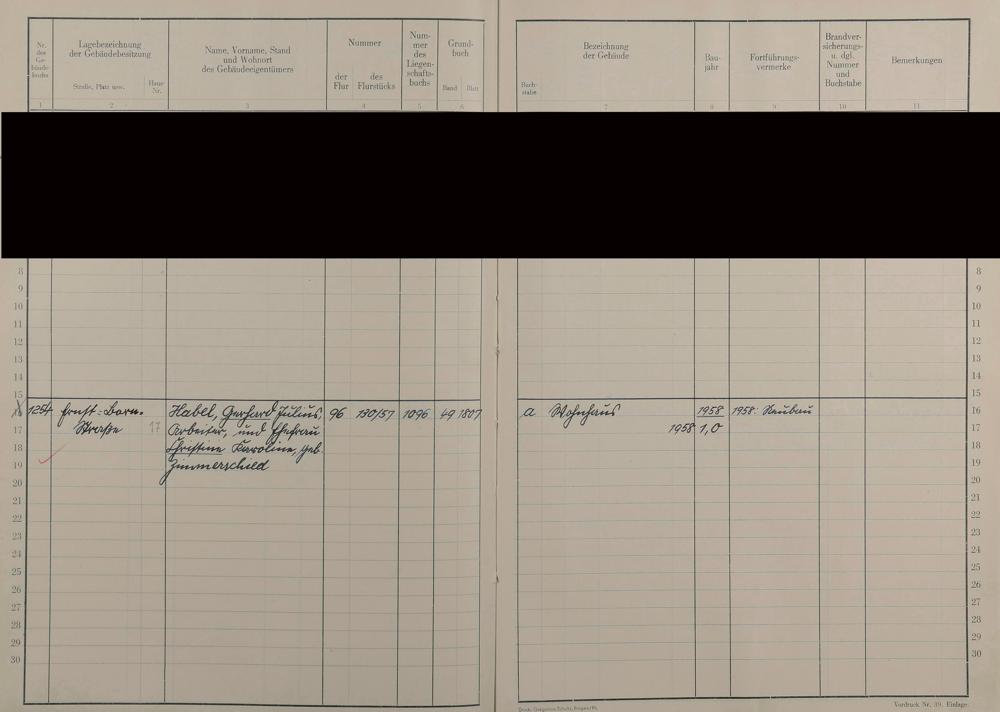 Nr. des Ge- bäude- buchs
Lagebezeichnung
der Gebäudebesitzung
Straße, Platz usw.
Haus- Nr.
Name, Vorname, Stand
und Wohnort
des Gebäudeeigentümers
Nummer
der Flur
des Flurstücks
Num-
mer
des
Liegen-
schafts-
buchs
Grund-
buch
Band Blatt
1 2 3 4 5 6
Buch-
stabe
Bezeichnung
der Gebäude
Bau-
jahr
Fortführungs-
vermerke
Brandver-
sicherungs-
u. dgl.
Nummer
und
Buchstabe
Bemerkungen
7 8 9 10 11
8 8
9 9
10 10
11 11
12 12
13 13
14 14
15 15
1254 Ernst-Born- Habel, Gerhard Julius, 96 130/57 1096 49 1807 a Wohnhaus 1958 1958: Neubau 16
17 Straße 17 Arbeiter, und Ehefrau 1958 1,0 17
18 Christine Karoline, geb. 18
19 Zimmerschied 19
20 20
21 21
22 22
23 23
24 24
25 25
26 26
27 27
28 28
29 29
30 30
Vordruck Nr. 39. Einlage.